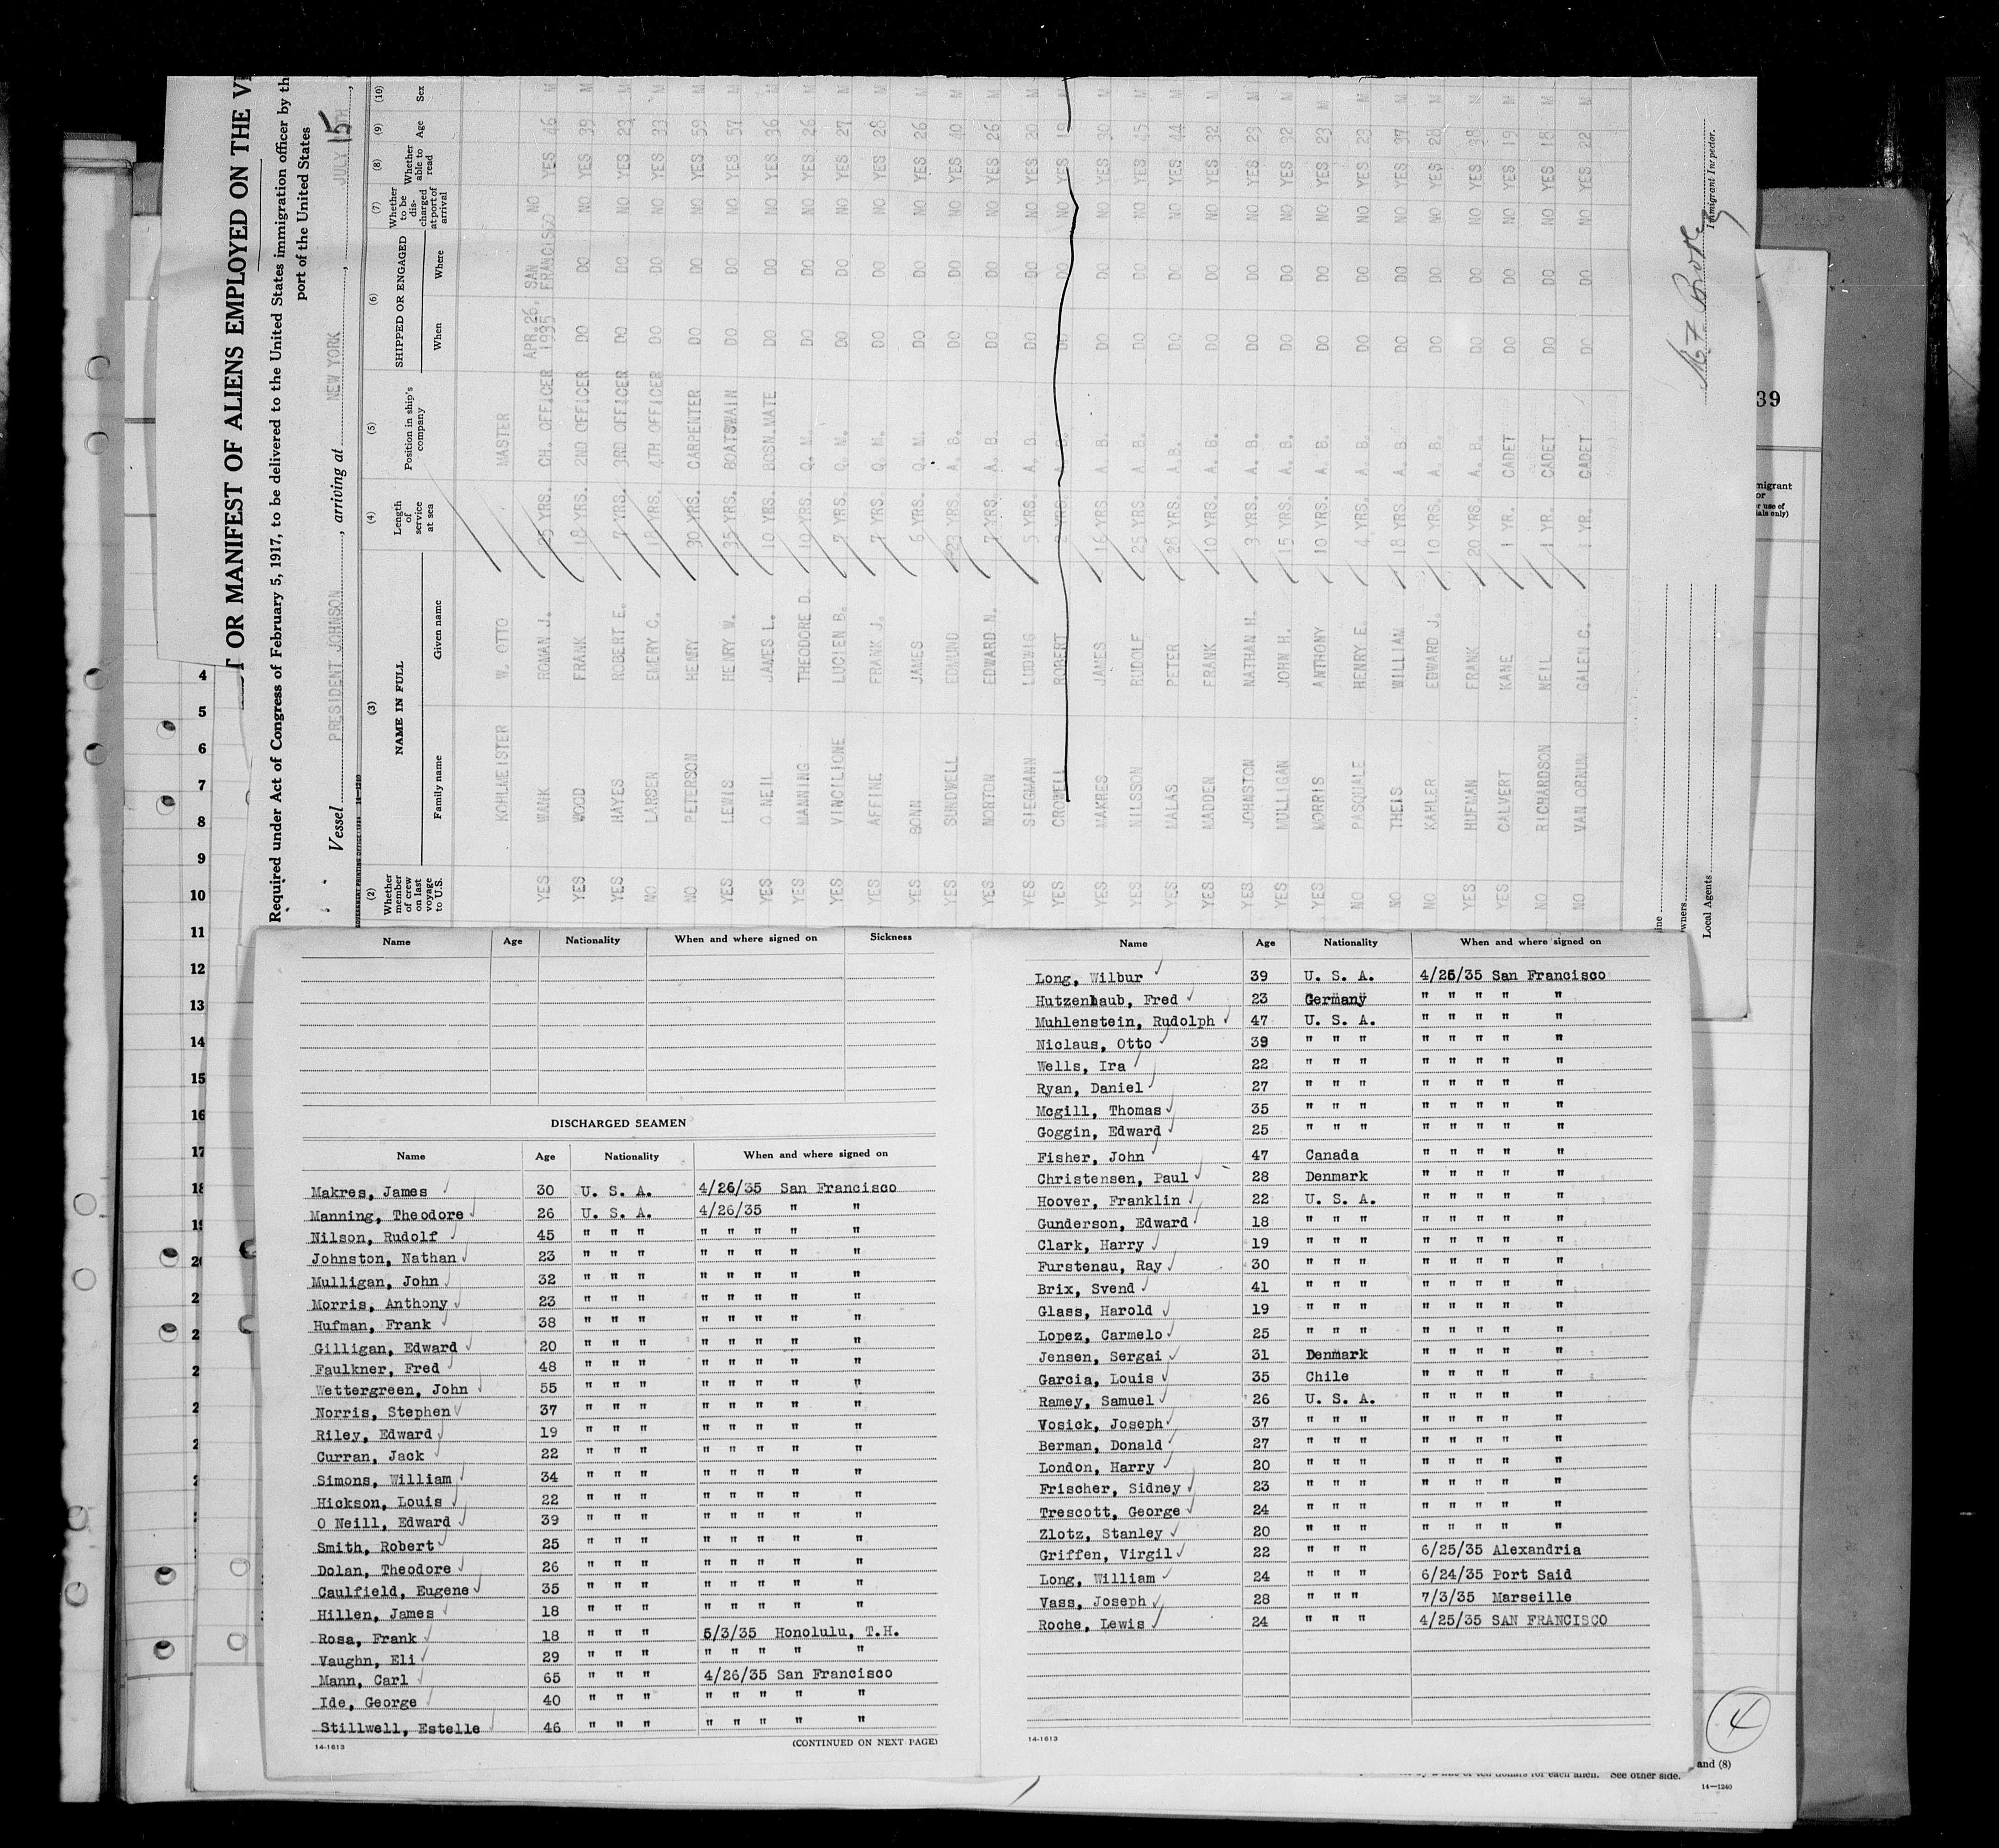 T OR MANIFEST OF ALIENS EMPLOYED ON THE
Required under Act of Congress of February 5, 1917, to be delivered to the United States immigration officer by th
port of the United States
Vessel PRESIDENT JOHNSON, arriving at NEW YORK, JULY 15
(2) Whether member of crew on last voyage to U.S. (3) NAME IN FULL Family name Given name (4) Length of service at sea (5) Position in ship's company (6) SHIPPED OR ENGAGED When Where (7) Whether to be discharged at port of arrival (8) Whether able to read (9) Age (10) Sex
KOHLMEISTER W. OTTO MASTER
YES WANK ROMAN J. 25 YRS. CH. OFFICER APR.26, 1935 SAN FRANCISCO NO YES 46 M
YES WOOD FRANK 18 YRS. 2ND OFFICER DO DO NO YES 39 M
YES HAYES ROBERT E. 7 YRS. 3RD OFFICER DO DO NO YES 23 M
NO LARSEN EMERY C. 18 YRS. 4TH OFFICER DO DO NO YES 33 M
NO PETERSON HENRY 30 YRS. CARPENTER DO DO NO YES 59 M
YES LEWIS HENRY W. 35 YRS. BOATSWAIN DO DO NO YES 57 M
YES O NEIL JAMES L. 10 YRS. BOSN.MATE DO DO NO YES 36 M
YES MANNING THEODORE D. 10 YRS. Q. M. DO DO NO YES 26 M
YES VINCILIONE LUCIEN B. 7 YRS. Q. M. DO DO NO YES 27 M
YES AFFINE FRANK J. 7 YRS. Q. M. DO DO NO YES 28 M
YES BONN JAMES 6 YRS. Q. M. DO DO NO YES 26 M
YES SUNDWELL EDMUND 23 YRS. A. B. DO DO NO YES 40 M
YES NORTON EDWARD N. 7 YRS. A. B. DO DO NO YES 26 M
YES SIEGMANN LUDWIG 5 YRS. A. B. DO DO NO YES M
YES CROWELL ROBERT 2 YRS. A. B. DO DO NO YES 19 M
YES MAKRES JAMES 16 YRS. A. B. DO DO NO YES 30 M
YES NILSSON RUDOLF 25 YRS. A. B. DO DO NO YES 45 M
YES MALAS PETER 28 YRS. A.B. DO DO NO YES 44 M
YES MADDEN FRANK 10 YRS. A. B. DO DO NO YES 32 M
YES JOHNSTON NATHAN H. 3 YRS. A. B. DO DO NO YES 23 M
YES MULLIGAN JOHN H. 15 YRS. A. B. DO DO NO YES 32 M
YES MORRIS ANTHONY 10 YRS. A. B. DO DO NO YES 23 M
NO PASQUALE HENRY E. 4 YRS. A. B. DO DO NO YES 23 M
NO THEIS WILLIAM 18 YRS. A. B. DO DO NO YES 37 M
NO KAHLER EDWARD J. 10 YRS. A. B. DO DO NO YES 28 M
YES HUFMAN FRANK 20 YRS. A. B. DO DO NO YES 38 M
YES CALVERT KANE 1 YR. CADET DO DO NO YES 19 M
NO RICHARDSON NEIL 1 YR. CADET DO DO NO YES 18 M
NO VAN ORNUM GALEN C. 1 YR. CADET DO DO NO YES 22 M
Local Agents
Immigrant Inspector.
39
4
5
6
7
8
9
10
11
12
13
14
15
16
17
Name Age Nationality When and where signed on Sickness
DISCHARGED SEAMEN
Name Age Nationality When and where signed on
Makres, James 30 U. S. A. 4/26/35 San Francisco
Manning, Theodore 26 U. S. A. 4/26/35 " "
Nilson, Rudolf 45 " " " " " " " "
Johnston, Nathan 23 " " " " " " " "
Mulligan, John 32 " " " " " " " "
Morris, Anthony 23 " " " " " " " "
Hufman, Frank 38 " " " " " " " "
Gilligan, Edward 20 " " " " " " " "
Faulkner, Fred 48 " " " " " " " "
Wettergreen, John 55 " " " " " " " "
Norris, Stephen 37 " " " " " " " "
Riley, Edward 19 " " " " " " " "
Curran, Jack 22 " " " " " " " "
Simons, William 34 " " " " " " " "
Hickson, Louis 22 " " " " " " " "
O Neill, Edward 39 " " " " " " " "
Smith, Robert 25 " " " " " " " "
Dolan, Theodore 26 " " " " " " " "
Caulfield, Eugene 35 " " " " " " " "
Hillen, James 18 " " " " " " " "
Rosa, Frank 18 " " " 5/3/35 Honolulu, T.H.
Vaughn, Eli 29 " " " " " " " "
Mann, Carl 65 " " " 4/26/35 San Francisco
Ide, George 40 " " " " " " " "
Stillwell, Estelle 46 " " " " " " " "
14-1613 (CONTINUED ON NEXT PAGE)
Name Age Nationality When and where signed on
Long, Wilbur 39 U. S. A. 4/26/35 San Francisco
Hutzenhaub, Fred 23 Germany " " " " "
Muhlenstein, Rudolph 47 U. S. A. " " " " "
Niclaus, Otto 39 " " " " " " " "
Wells, Ira 22 " " " " " " " "
Ryan, Daniel 27 " " " " " " " "
Mcgill, Thomas 35 " " " " " " " "
Goggin, Edward 25 " " " " " " " "
Fisher, John 47 Canada " " " " "
Christensen, Paul 28 Denmark " " " " "
Hoover, Franklin 22 U. S. A. " " " " "
Gunderson, Edward 18 " " " " " " " "
Clark, Harry 19 " " " " " " " "
Furstenau, Ray 30 " " " " " " " "
Brix, Svend 41 " " " " " " " "
Glass, Harold 19 " " " " " " " "
Lopez, Carmelo 25 " " " " " " " "
Jensen, Sergai 31 Denmark " " " " "
Garcia, Louis 35 Chile " " " " "
Ramey, Samuel 26 U. S. A. " " " " "
Vosick, Joseph 37 " " " " " " " "
Berman, Donald 27 " " " " " " " "
London, Harry 20 " " " " " " " "
Frischer, Sidney 23 " " " " " " " "
Trescott, George 24 " " " " " " " "
Zlotz, Stanley 20 " " " " " " " "
Griffen, Virgil 22 " " " 6/25/35 Alexandria
Long, William 24 " " " 6/24/35 Port Said
Vass, Joseph 28 " " " 7/3/35 Marseille
Roche, Lewis 24 " " " 4/25/35 SAN FRANCISCO
14-1613
4
and (8)
See other side.
14-1240